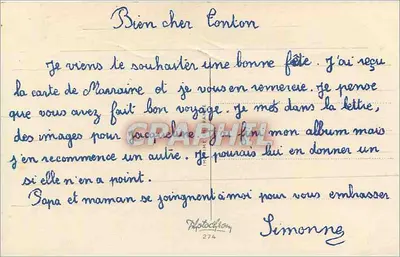 Bien cher Tonton
Je viens te souhaiter une bonne fête. J'ai reçu
la carte de Marraine et je vous en remercie. Je pense
que vous avez fait bon voyage. Je mets dans la lettre,
des images pour jacqueline. J'ai fini mon album mais
j'en recommence un autre. Je pourais lui en donner un
si elle n'en a point.
Papa et maman se joingnent à moi pour vous embrasser
Simonne
CPAPHIL
Photochrom
274